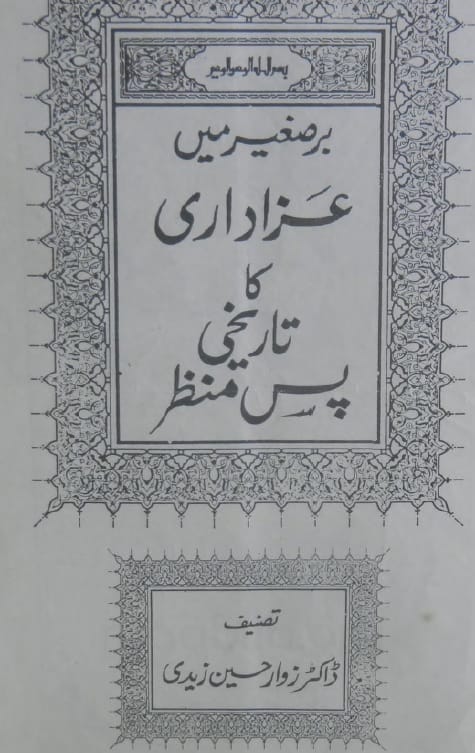 بسم اللہ الرحمن الرحیم
برصغیر میں
عزاداری
کا
تاریخی
پس منظر
تصنیف
ڈاکٹر زوار حسین زیدی